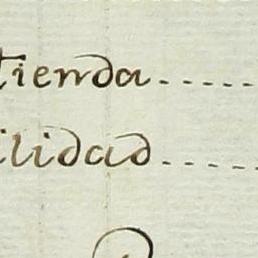 tienda......
ilidad......